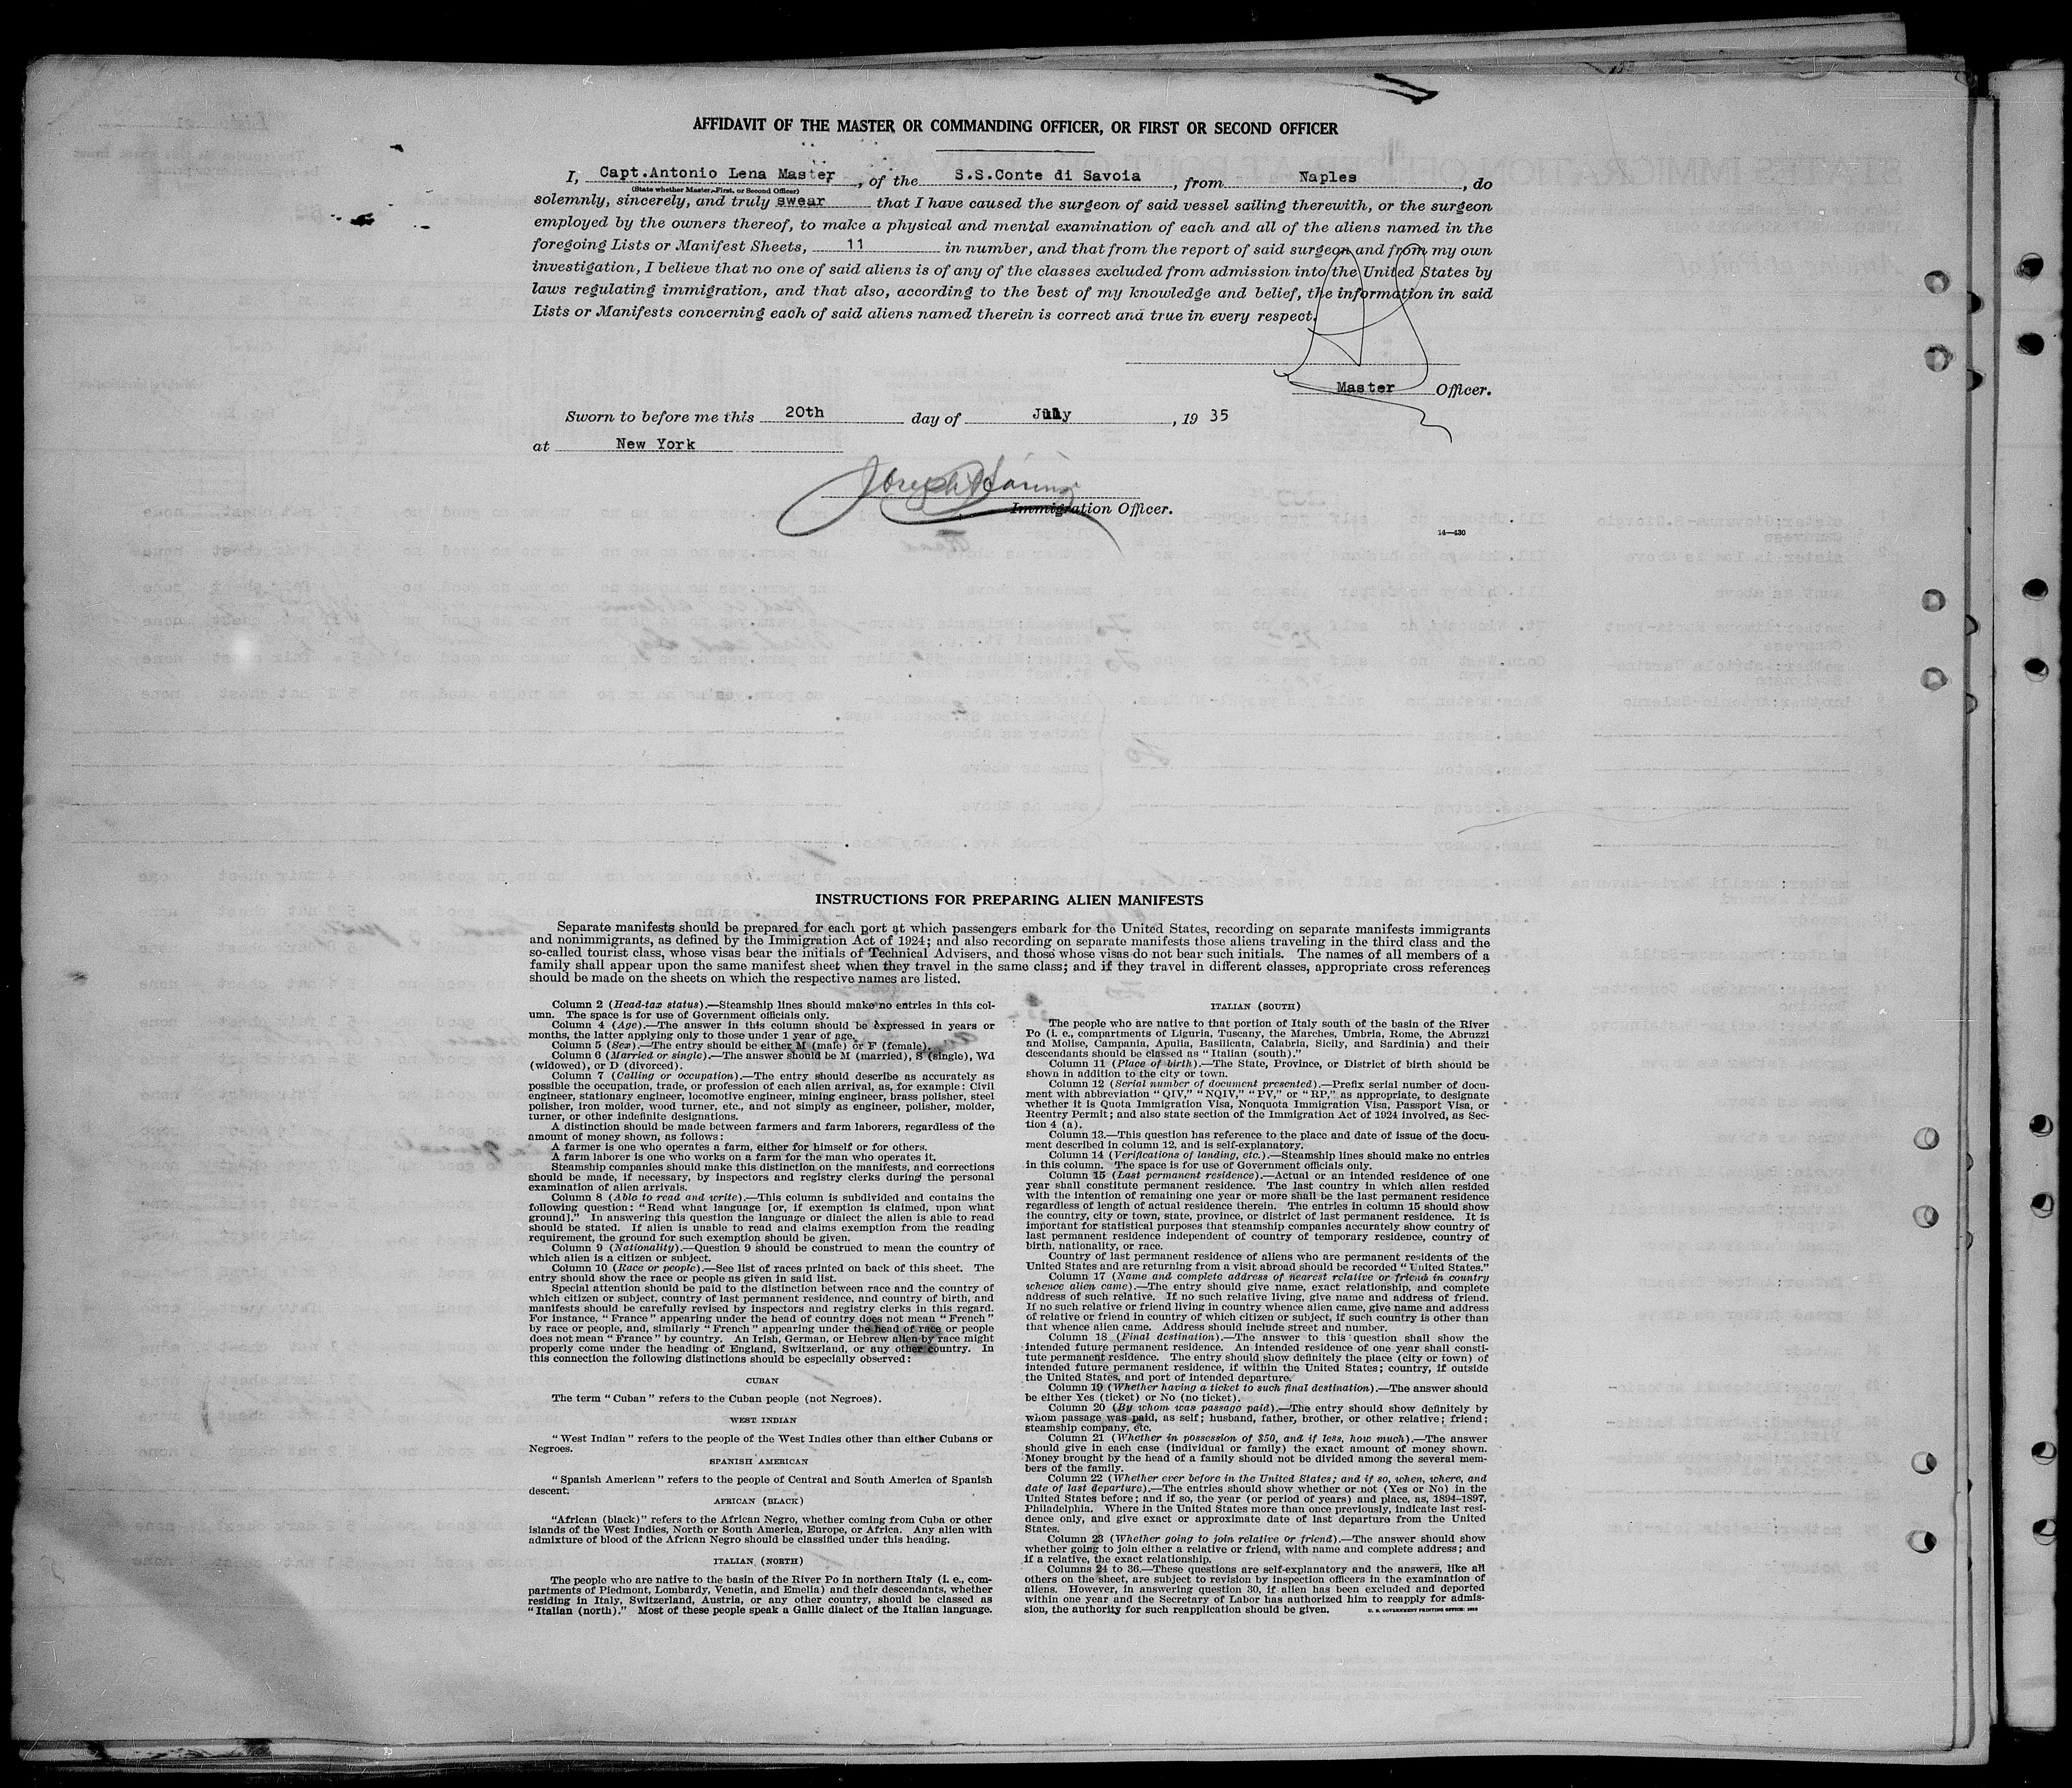 AFFIDAVIT OF THE MASTER OR COMMANDING OFFICER, OR FIRST OR SECOND OFFICER
I, Capt.Antonio Lena Master, of the S.S.Conte di Savoia, from Naples, do
(State whether Master, First, or Second Officer)
solemnly, sincerely, and truly swear that I have caused the surgeon of said vessel sailing therewith, or the surgeon
employed by the owners thereof, to make a physical and mental examination of each and all of the aliens named in the
foregoing Lists or Manifest Sheets, 11 in number, and that from the report of said surgeon and from my own
investigation, I believe that no one of said aliens is of any of the classes excluded from admission into the United States by
laws regulating immigration, and that also, according to the best of my knowledge and belief, the information in said
Lists or Manifests concerning each of said aliens named therein is correct and true in every respect.
Master Officer.
Sworn to before me this 20th day of July, 19 35
at New York
Immigration Officer.
14—430
INSTRUCTIONS FOR PREPARING ALIEN MANIFESTS
Separate manifests should be prepared for each port at which passengers embark for the United States, recording on separate manifests immigrants
and nonimmigrants, as defined by the Immigration Act of 1924; and also recording on separate manifests those aliens traveling in the third class and the
so-called tourist class, whose visas bear the initials of Technical Advisers, and those whose visas do not bear such initials. The names of all members of a
family shall appear upon the same manifest sheet when they travel in the same class; and if they travel in different classes, appropriate cross references
should be made on the sheets on which the respective names are listed.
Column 2 (Head-tax status).—Steamship lines should make no entries in this col-
umn. The space is for use of Government officials only.
Column 4 (Age).—The answer in this column should be expressed in years or
months, the latter applying only to those under 1 year of age.
Column 5 (Sex).—The entry should be either M (male) or F (female).
Column 6 (Married or single).—The answer should be M (married), S (single), Wd
(widowed), or D (divorced).
Column 7 (Calling or occupation).—The entry should describe as accurately as
possible the occupation, trade, or profession of each alien arrival, as, for example: Civil
engineer, stationary engineer, locomotive engineer, mining engineer, brass polisher, steel
polisher, iron molder, wood turner, etc., and not simply as engineer, polisher, molder,
turner, or other indefinite designations.
A distinction should be made between farmers and farm laborers, regardless of the
amount of money shown, as follows:
A farmer is one who operates a farm, either for himself or for others.
A farm laborer is one who works on a farm for the man who operates it.
Steamship companies should make this distinction on the manifests, and corrections
should be made, if necessary, by inspectors and registry clerks during the personal
examination of alien arrivals.
Column 8 (Able to read and write).—This column is subdivided and contains the
following question: "Read what language [or, if exemption is claimed, upon what
ground]." In answering this question the language or dialect the alien is able to read
should be stated. If alien is unable to read and claims exemption from the reading
requirement, the ground for such exemption should be given.
Column 9 (Nationality).—Question 9 should be construed to mean the country of
which alien is a citizen or subject.
Column 10 (Race or people).—See list of races printed on back of this sheet. The
entry should show the race or people as given in said list.
Special attention should be paid to the distinction between race and the country of
which citizen or subject, country of last permanent residence, and country of birth, and
manifests should be carefully revised by inspectors and registry clerks in this regard.
For instance, "France" appearing under the head of country does not mean "French"
by race or people, and, similarly "French" appearing under the head of race or people
does not mean "France" by country. An Irish, German, or Hebrew alien by race might
properly come under the heading of England, Switzerland, or any other country. In
this connection the following distinctions should be especially observed:
CUBAN
The term "Cuban" refers to the Cuban people (not Negroes).
WEST INDIAN
"West Indian" refers to the people of the West Indies other than either Cubans or
Negroes.
SPANISH AMERICAN
"Spanish American" refers to the people of Central and South America of Spanish
descent.
AFRICAN (BLACK)
"African (black)" refers to the African Negro, whether coming from Cuba or other
islands of the West Indies, North or South America, Europe, or Africa. Any alien with
admixture of blood of the African Negro should be classified under this heading.
ITALIAN (NORTH)
The people who are native to the basin of the River Po in northern Italy (i. e., com-
partments of Piedmont, Lombardy, Venetia, and Emelia) and their descendants, whether
residing in Italy, Switzerland, Austria, or any other country, should be classed as
"Italian (north)." Most of these people speak a Gallic dialect of the Italian language.
ITALIAN (SOUTH)
The people who are native to that portion of Italy south of the basin of the River
Po (i. e., compartments of Liguria, Tuscany, the Marches, Umbria, Rome, the Abruzzi
and Molise, Campania, Apulia, Basilicata, Calabria, Sicily, and Sardinia) and their
descendants should be classed as "Italian (south)."
Column 11 (Place of birth).—The State, Province, or District of birth should be
shown in addition to the city or town.
Column 12 (Serial number of document presented).—Prefix serial number of docu-
ment with abbreviation "QIV," "NQIV," "PV," or "RP," as appropriate, to designate
whether it is Quota Immigration Visa, Nonquota Immigration Visa, Passport Visa, or
Reentry Permit; and also state section of the Immigration Act of 1924 involved, as Sec-
tion 4 (a).
Column 13.—This question has reference to the place and date of issue of the docu-
ment described in column 12, and is self-explanatory.
Column 14 (Verifications of landing, etc.).—Steamship lines should make no entries
in this column. The space is for use of Government officials only.
Column 15 (Last permanent residence).—Actual or an intended residence of one
year shall constitute permanent residence. The last country in which alien resided
with the intention of remaining one year or more shall be the last permanent residence
regardless of length of actual residence therein. The entries in column 15 should show
the country, city or town, state, province, or district of last permanent residence. It is
important for statistical purposes that steamship companies accurately show country of
last permanent residence independent of country of temporary residence, country of
birth, nationality, or race.
Country of last permanent residence of aliens who are permanent residents of the
United States and are returning from a visit abroad should be recorded "United States."
Column 17 (Name and complete address of nearest relative or friend in country
whence alien came).—The entry should give name, exact relationship, and complete
address of such relative. If no such relative living, give name and address of friend.
If no such relative or friend living in country whence alien came, give name and address
of relative or friend in country of which citizen or subject, if such country is other than
that whence alien came. Address should include street and number.
Column 18 (Final destination).—The answer to this question shall show the
intended future permanent residence. An intended residence of one year shall consti-
tute permanent residence. The entry should show definitely the place (city or town) of
intended future permanent residence, if within the United States; country, if outside
the United States, and port of intended departure.
Column 19 (Whether having a ticket to such final destination).—The answer should
be either Yes (ticket) or No (no ticket).
Column 20 (By whom was passage paid).—The entry should show definitely by
whom passage was paid, as self; husband, father, brother, or other relative; friend;
steamship company, etc.
Column 21 (Whether in possession of $50, and if less, how much).—The answer
should give in each case (individual or family) the exact amount of money shown.
Money brought by the head of a family should not be divided among the several mem-
bers of the family.
Column 22 (Whether ever before in the United States; and if so, when, where, and
date of last departure).—The entries should show whether or not (Yes or No) in the
United States before; and if so, the year (or period of years) and place, as, 1894–1897,
Philadelphia. Where in the United States more than once previously, indicate last resi-
dence only, and give exact or approximate date of last departure from the United
States.
Column 23 (Whether going to join relative or friend).—The answer should show
whether going to join either a relative or friend, with name and complete address; and
if a relative, the exact relationship.
Columns 24 to 36.—These questions are self-explanatory and the answers, like all
others on the sheet, are subject to revision by inspection officers in the examination of
aliens. However, in answering question 30, if alien has been excluded and deported
within one year and the Secretary of Labor has authorized him to reapply for admis-
sion, the authority for such reapplication should be given.
U. S. GOVERNMENT PRINTING OFFICE